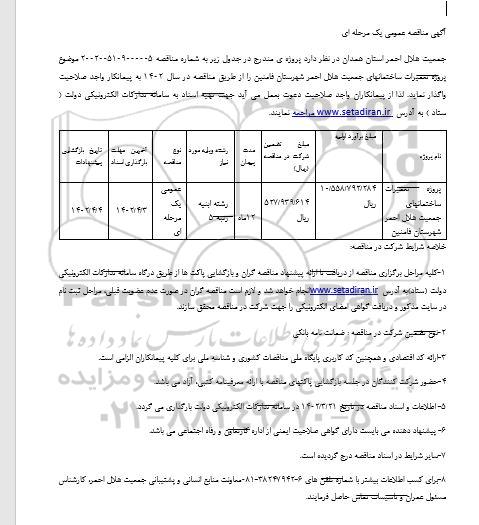 آگهی مناقصه عمومی یک مرحله ای
جمعیت هلال احمر استان همدان در نظر دارد پروژه ی مندرج در جدول زیر به شماره مناقصه 2002005109000005 موضوع
پروژه تعمیرات ساختمانهای جمعیت هلال احمر شهرستان فامنین را از طریق مناقصه در سال 1402 به پیمانکار واجد صلاحیت
واگذار نماید. لذا از پیمانکاران واجد صلاحیت دعوت بعمل می آید جهت تهیه اسناد به سامانه تدارکات الکترونیکی دولت (
ستاد ) به آدرس www.setadiran.ir مراجعه نمایند.
نام پروژه | مبلغ برآورد اولیه | مبلغ تضمین شرکت در مناقصه (ریال) | مدت پیمان | رشته ورتبه مورد نیاز | نوع مناقصه | آخرین مهلت بارگذاری اسناد | تاریخ بازگشایی پیشنهادات
پروژه تعمیرات ساختمانهای جمعیت هلال احمر شهرستان فامنین | 10/558/792/284 ریال | 527/939/614 ریال | 12ماه | رشته ابنیه رتبه 5 | عمومی یک مرحله ای | 1402/4/3 | 1402/4/4
خلاصه شرایط شرکت در مناقصه:
1-کلیه مراحل برگزاری مناقصه از دریافت تا ارائه پیشنهاد مناقصه گران و بازگشایی پاکت ها از طریق درگاه سامانه تدارکات الکترونیکی
دولت (ستاد)به آدرس www.setadiran.ir انجام خواهد شد و لازم است مناقصه گران در صورت عدم عضویت قبلی، مراحل ثبت نام
در سایت مذکور و دریافت گواهی امضای الکترونیکی را جهت شرکت در مناقصه محقق سازند.
2-نوع تضمین شرکت در مناقصه : ضمانت نامه بانکی
3-ارائه کد اقتصادی و همچنین کد کاربری پایگاه ملی مناقصات کشوری و شناسه ملی برای کلیه پیمانکاران الزامی است.
4-حضور شرکت کنندگان در جلسه بازگشایی پاکتهای مناقصه با ارائه معرفینامه کتبی، آزاد می باشد.
5- اطلاعات و اسناد مناقصه در تاریخ 1402/3/21 در سامانه تدارکات الکترونیکی دولت بارگذاری می گردد.
6- پیشنهاد دهنده می بایست دارای گواهی صلاحیت ایمنی از اداره کارتعاون و رفاه اجتماعی می باشد.
7-سایر شرایط در اسناد مناقصه درج گردیده است.
8-برای کسب اطلاعات بیشتر با شماره تلفن های 6-38247942-081معاونت منابع انسانی و پشتیبانی جمعیت هلال احمر، کارشناس
مسئول عمران و تاسیسات تماس حاصل فرمایند.